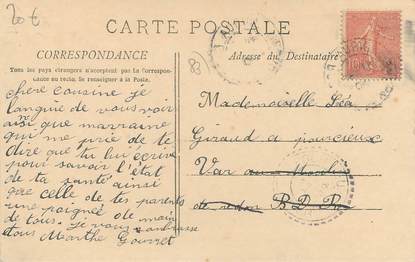 20 €
CARTE POSTALE
CORRESPONDANCE
Tous les pays étrangers n'acceptent pas la Correspon-
dance au recto. (Se renseigner à la Poste).
Adresse du Destinataire
83
chere cousine je
languie de vous voir
aisi que marraine
que me prie de te
dize que tu lui ecrive
pour savoir l'etat
de ta santé ainsi
que celle de tes parents
une poignée de main
de tous. Je vous embrasse
tous Marthe Gouret
Mademoiselle Léa
Giraud a pourcieux
Var au Moulin
de redon B D Rh